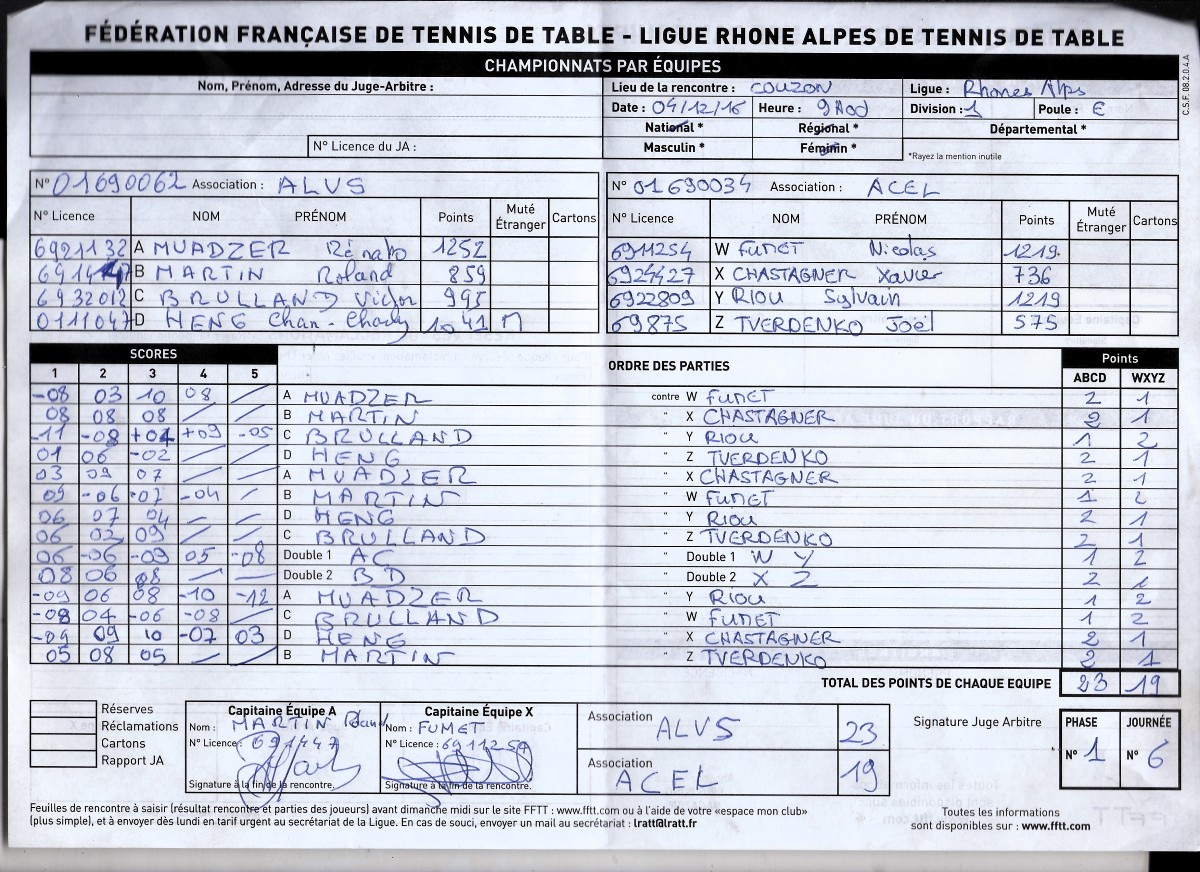 FÉDÉRATION FRANÇAISE DE TENNIS DE TABLE - LIGUE RHONE ALPES DE TENNIS DE TABLE
CHAMPIONNATS PAR ÉQUIPES
C.S.F. 08.2.0.4.A
Nom, Prénom, Adresse du Juge-Arbitre :
N° Licence du JA :
Lieu de la rencontre : COUZON Ligue : Rhones Alps
Date : 04/12/16 Heure : 9h00 Division : 1 Poule : E
National * Régional * Départemental *
Masculin * Féminin *
*Rayez la mention inutile
N° 01690062 Association : ALVS
N° Licence NOM PRÉNOM Points Muté Étranger Cartons
6921132 A MUADZER Rénato 1252
B MARTIN Roland 859
6932012 C BRULLAND Victor 995
0111047 D HENG Chan-Chady 1041 M
N° 01690034 Association : ACEL
N° Licence NOM PRÉNOM Points Muté Étranger Cartons
6911254 W FUMET Nicolas 1219
6924427 X CHASTAGNER Xavier 736
6922809 Y RIOU Sylvain 1219
69875 Z TVERDENKO Joël 575
SCORES ORDRE DES PARTIES Points
1 2 3 4 5 ABCD WXYZ
-08 03 10 08 / A MUADZER contre W FUMET 2 1
08 08 08 / / B MARTIN " X CHASTAGNER 2 1
-11 -08 +04 +09 -05 C BRULLAND " Y RIOU 1 2
01 06 -02 / / D HENG " Z TVERDENKO 2 1
03 09 07 / / A MUADZER " X CHASTAGNER 2 1
09 -06 -07 -04 / B MARTIN " W FUMET 1 2
06 07 04 / / D HENG " Y RIOU 2 1
06 02 09 / / C BRULLAND " Z TVERDENKO 2 1
06 -06 -09 05 -08 Double 1 AC " Double 1 W Y 1 2
08 06 08 / / Double 2 BD " Double 2 X Z 2 1
-09 06 08 -10 -12 A MUADZER " Y RIOU 1 2
-08 04 -06 -08 / C BRULLAND " W FUMET 1 2
-09 09 10 -07 03 D HENG " X CHASTAGNER 2 1
05 08 05 / / B MARTIN " Z TVERDENKO 2 1
TOTAL DES POINTS DE CHAQUE EQUIPE 23 19
Réserves
Réclamations
Cartons
Rapport JA
Capitaine Équipe A
Nom : MARTIN Roland
N° Licence : 691447
Signature à la fin de la rencontre.
Capitaine Équipe X
Nom : FUMET
N° Licence : 6911254
Signature à la fin de la rencontre.
Association ALVS 23
Association ACEL 19
Signature Juge Arbitre
PHASE JOURNÉE
N° 1 N° 6
Feuilles de rencontre à saisir (résultat rencontre et parties des joueurs) avant dimanche midi sur le site FFTT : www.fftt.com ou à l'aide de votre «espace mon club»
(plus simple), et à envoyer dès lundi en tarif urgent au secrétariat de la Ligue. En cas de souci, envoyer un mail au secrétariat : lratt@lratt.fr
Toutes les informations
sont disponibles sur : www.fftt.com